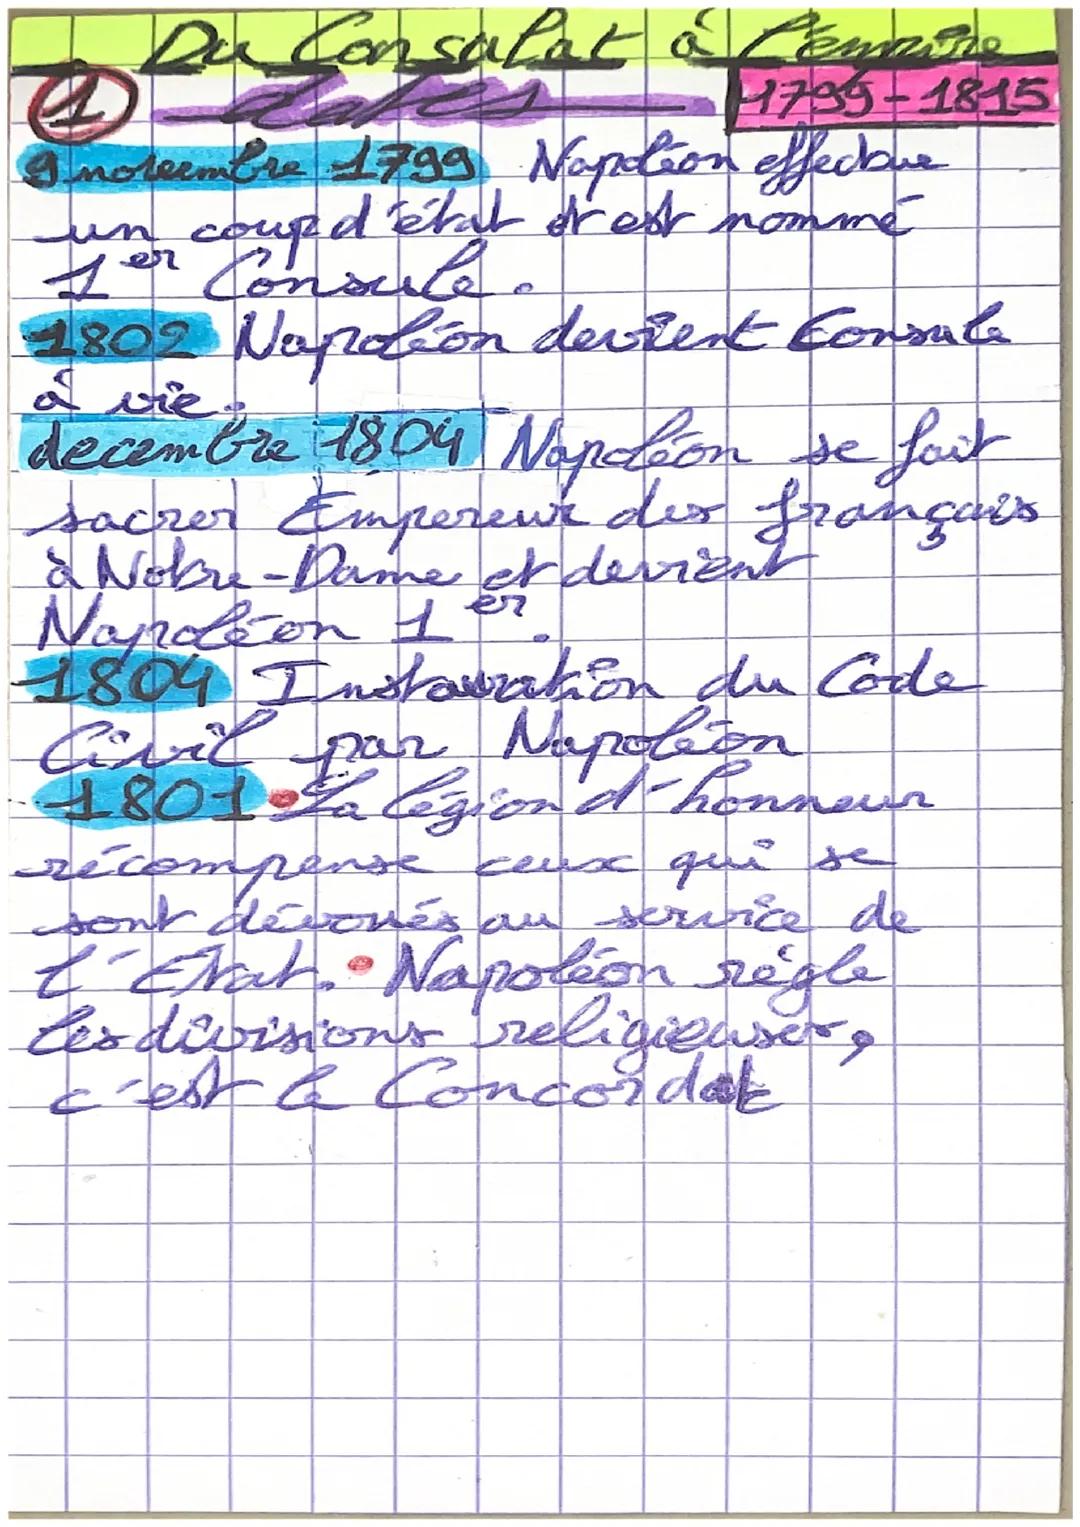 Du Consulat à l'empire
1 dates 1799-1815
9 novembre 1799 Napoléon effectue
un coup d'état et est nommé
1er Consule.
1802 Napoléon devient Consule
à vie.
decembre 1804 Napoléon se fait
sacrer Empereur des français
à Notre-Dame et devient
Napoléon 1er.
1804 Instauration du Code
Civil par Napoléon
1801 • La légion d'honneur
récompense ceux qui se
sont dévoués au service de
l'Etat. • Napoléon règle
les divisions religieuses,
c'est le Concordat